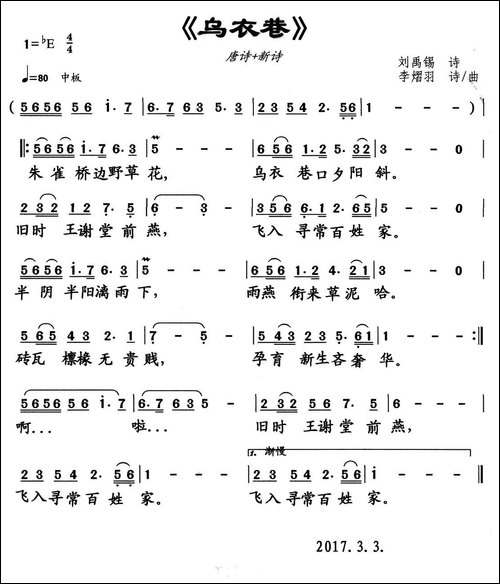 《乌衣巷》
1=♭E 4/4
唐诗+新诗
♩=80 中板
刘禹锡 诗
李熠羽 诗/曲
(5656 56 i·7 | 6·7 63 5·3 | 23 54 2·56 | 1 - - - )|
‖:5656 i·7 6·3 | 5 - - - | 656 1·2 4·3 | 3 - - 0 |
朱雀桥边野草花, 乌衣巷口夕阳斜。
2 32 12 7·5 | 6 - - 3 | 356 61 2·65 | 5 - - 0 |
旧时王谢堂前燕, 飞入寻常百姓家。
5656 i·7 6·3 | 5 - - - | 656 1·2 4·21 | 3 - - 0 |
半阴半阳漓雨下, 雨燕衔来草泥哈。
5 65 43 2·1 | 7 - - 5 | 235 54 5·61 | 1 - - - :‖
砖瓦檩椽无贵贱, 孕育新生吝奢华。
5656 56 i·7 | 6·7 635 5 - - | 2 32 56 7·5 | 6 - - 0 |
啊... 啦... 旧时王谢堂前燕,
1.渐慢
23 54 2·56 | 1 - - - | 23 54 2·56 | 1 - - - ‖
飞入寻常百姓家。 飞入寻常百姓家。
2017.3.3.